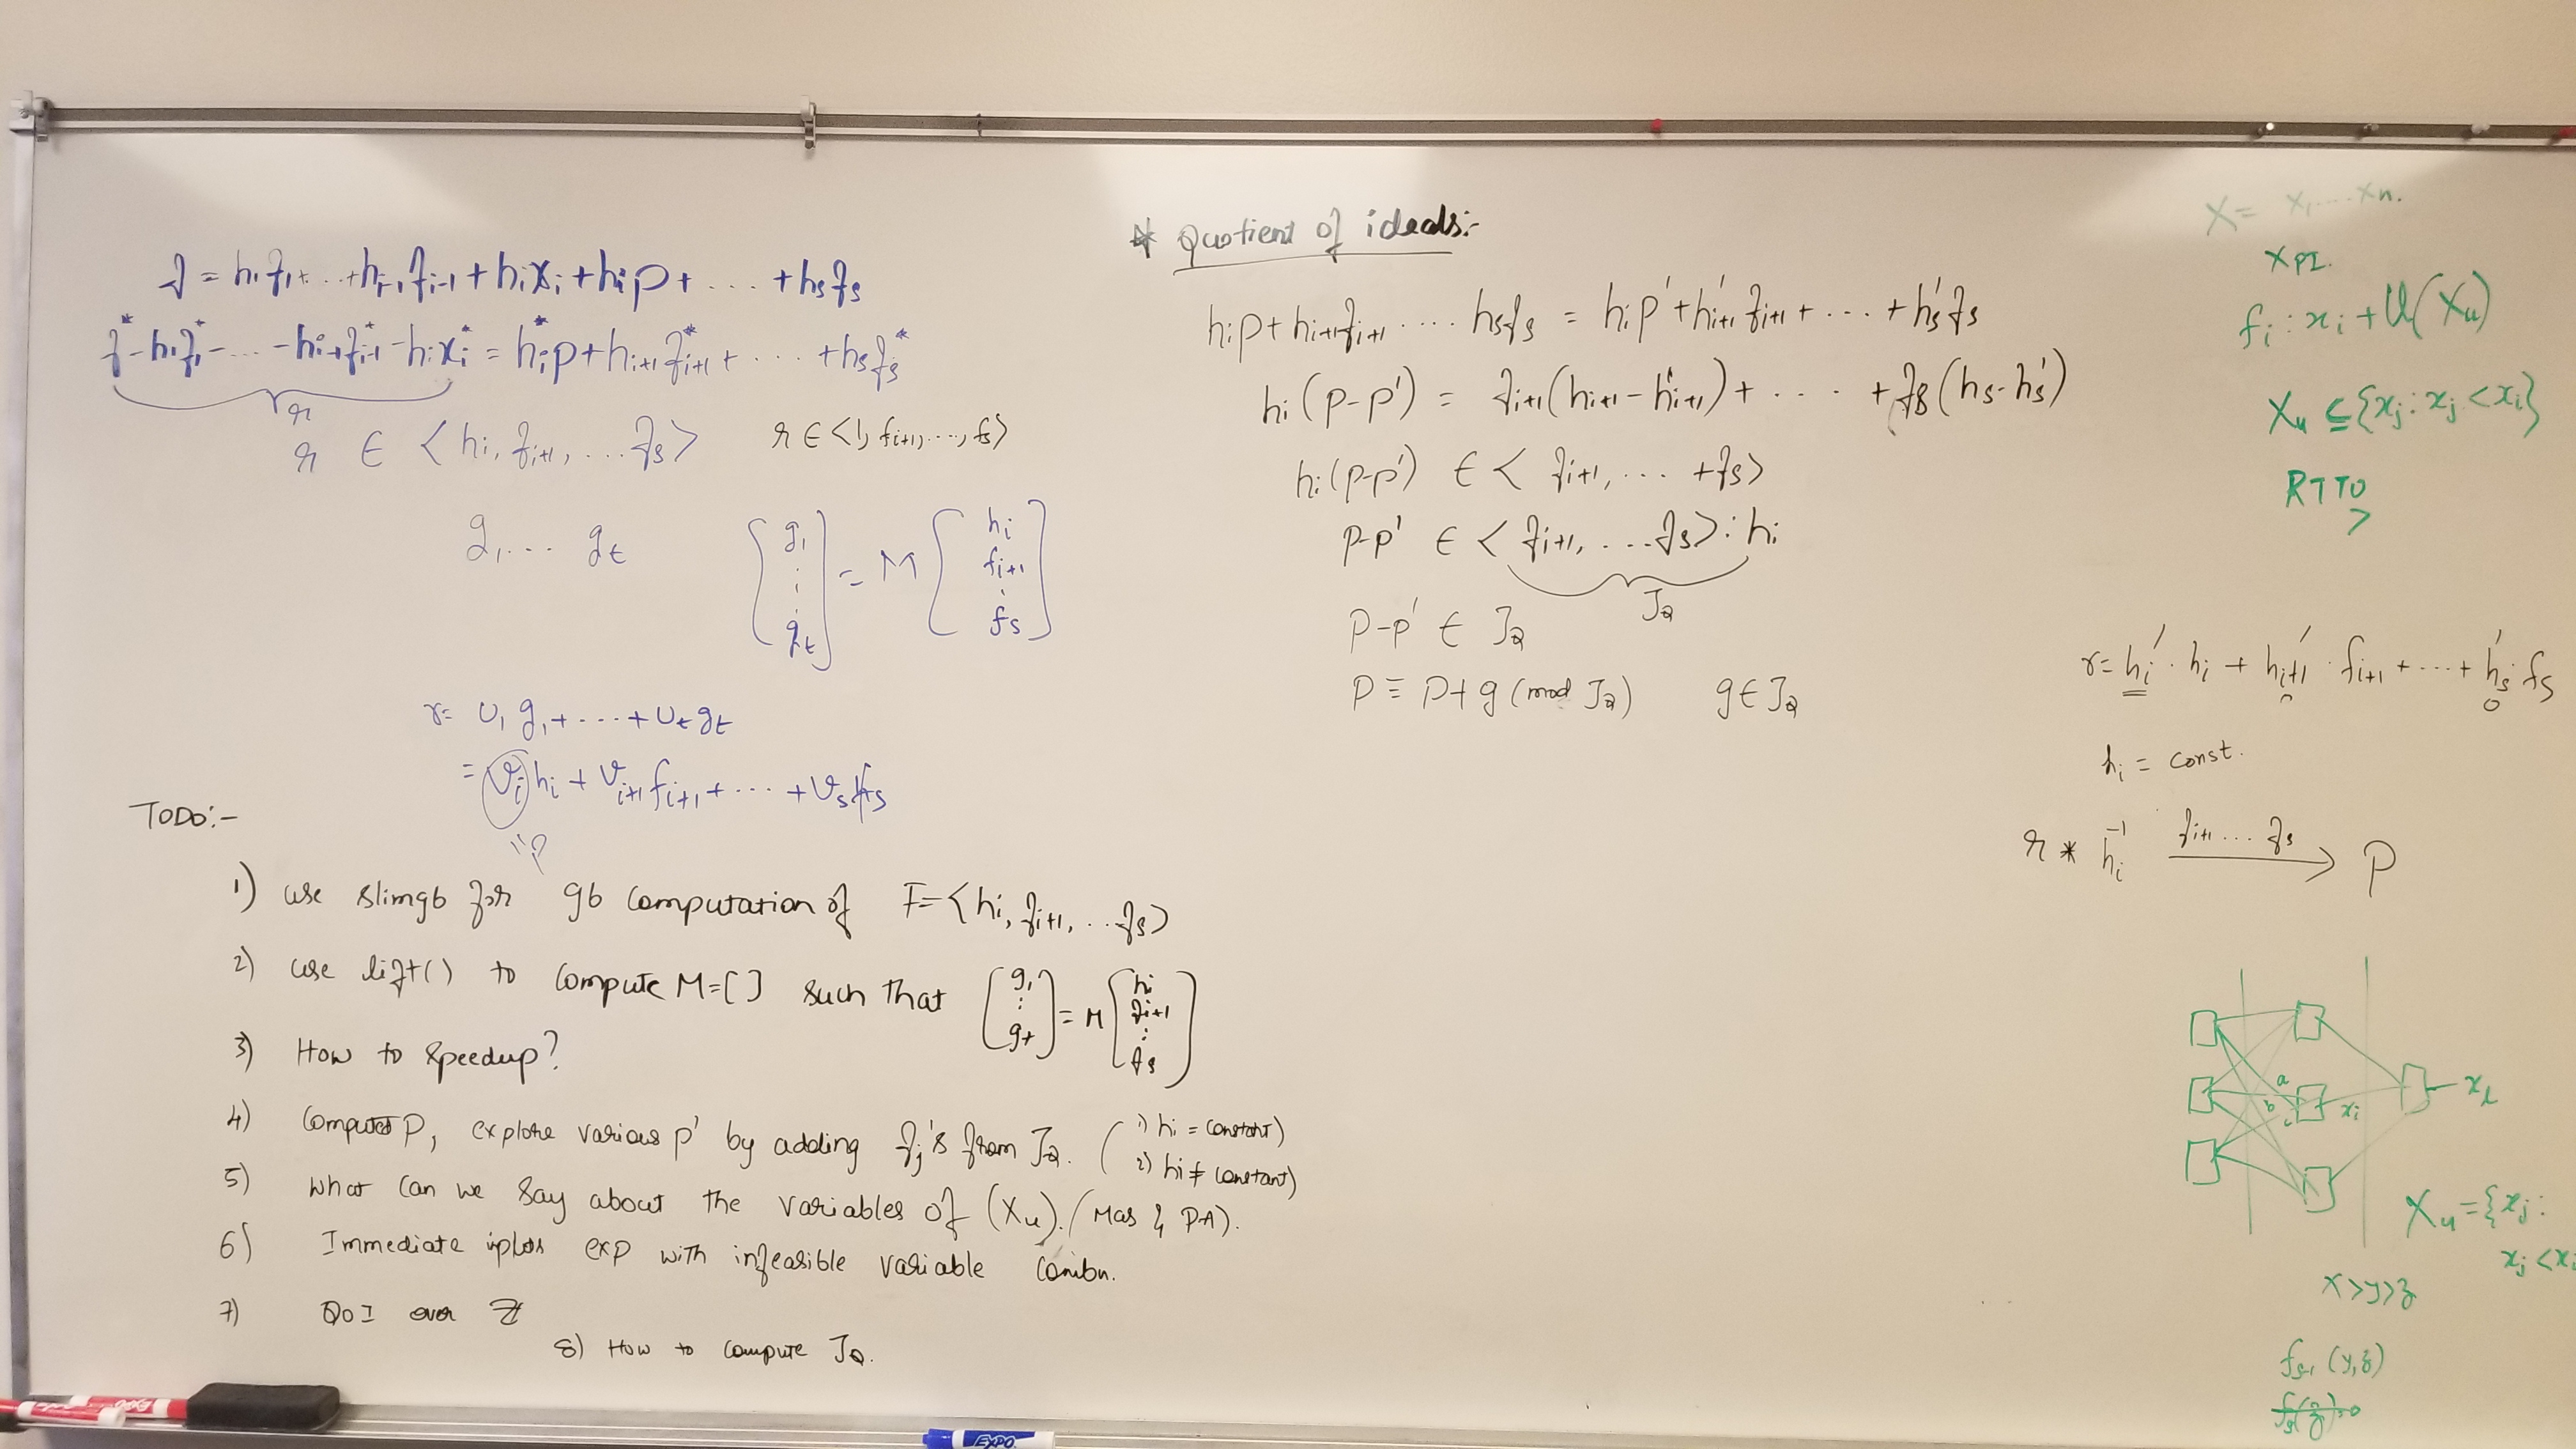 f = h₁f₁ + ... + hᵢ₋₁fᵢ₋₁ + hᵢxᵢ + hᵢp + .... + hₛfₛ
f* - h₁f₁* - ... - hᵢ₋₁fᵢ₋₁* - hᵢxᵢ* = hᵢ*p + hᵢ₊₁fᵢ₊₁* + .... + hₛfₛ*
r
r ∈ <hᵢ, fᵢ₊₁, ...fₛ> r ∈ <1, fᵢ₊₁, ..., fₛ>
g₁... gₜ [g₁ : gₜ] = M [hᵢ fᵢ₊₁ : fₛ]
r = u₁g₁ + .... + uₜgₜ
= vᵢhᵢ + vᵢ₊₁fᵢ₊₁ + ... + vₛfₛ
"p
TODO:-
1) use slimgb for gb computation of F=<hᵢ, fᵢ₊₁, ..fₛ>
2) use lift() to compute M=[ ] such that [g₁ : gₜ] = M [hᵢ fᵢ₊₁ : fₛ]
3) How to speedup?
4) Computed P, explore various p' by adding fⱼ's from J_Q. ( 1) hᵢ = constant)
2) hᵢ ≠ constant)
5) What can we say about the variables of (Xᵤ). (Mas & PA).
6) Immediate exp with infeasible variable combn.
7) QoI over ℤ
8) How to compute J_Q.
* Quotient of ideals:-
hᵢp + hᵢ₊₁fᵢ₊₁ .... hₛfₛ = hᵢp' + h'ᵢ₊₁fᵢ₊₁ + .... + h'ₛfₛ
hᵢ(p-p') = fᵢ₊₁(hᵢ₊₁ - h'ᵢ₊₁) + .... + fₛ(hₛ - h'ₛ)
hᵢ(p-p') ∈ < fᵢ₊₁, ... + fₛ>
p-p' ∈ < fᵢ₊₁, ....fₛ> : hᵢ
J_Q
p-p' ∈ J_Q
p ≡ p+g (mod J_Q) g ∈ J_Q
X = x₁....xₙ.
X_PI.
fᵢ : xᵢ + U(Xᵤ)
Xᵤ ⊆ {xⱼ : xⱼ < xᵢ}
RTTO >
r = hᵢ' · hᵢ + h'ᵢ₊₁ · fᵢ₊₁ + .... + h'ₛ fₛ
0 0
hᵢ = const.
r * hᵢ⁻¹ —fᵢ₊₁...fₛ→ p
a
b
c
xᵢ
Xᵤ = {xⱼ :
xⱼ < xᵢ
x > y > z
fₛ₋₁ (y,z)
fₛ(z)=0
EXPO